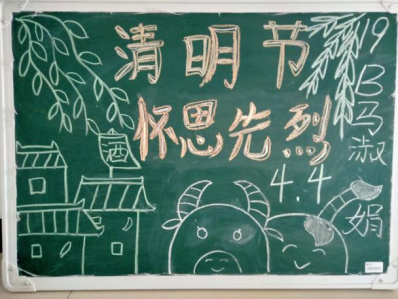 清明节
怀思先烈
4.4
19B马淑娟
酒